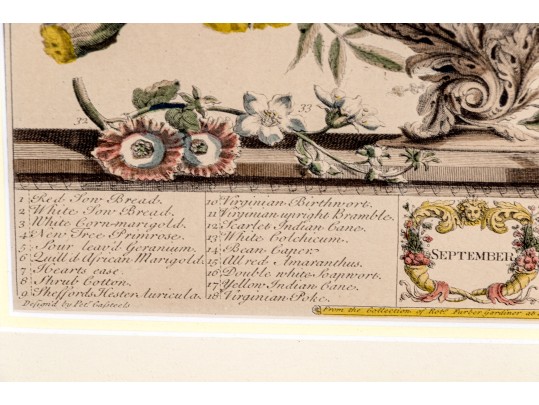 32
33
1 Red Sow Bread.
2 White Sow Bread.
3 White Corn-marigold.
4 New Tree Primrose.
5 Sour leav'd Geranium.
6 Quill'd African Marigold.
7 Hearts ease.
8 Shrub Cotton.
9 Sheffords Hester Auricula.
10 Virginian Birthwort.
11 Virginian upright Bramble.
12 Scarlet Indian Cane.
13 White Colchcum.
14 Bean Caper.
15 All red Amaranthus.
16 Double white Soapwort.
17 Yellow Indian Cane.
18 Virginian Poke.
SEPTEMBER
Design'd by Pet. Casteels
From the Collection of Robt. Furber Gardiner at